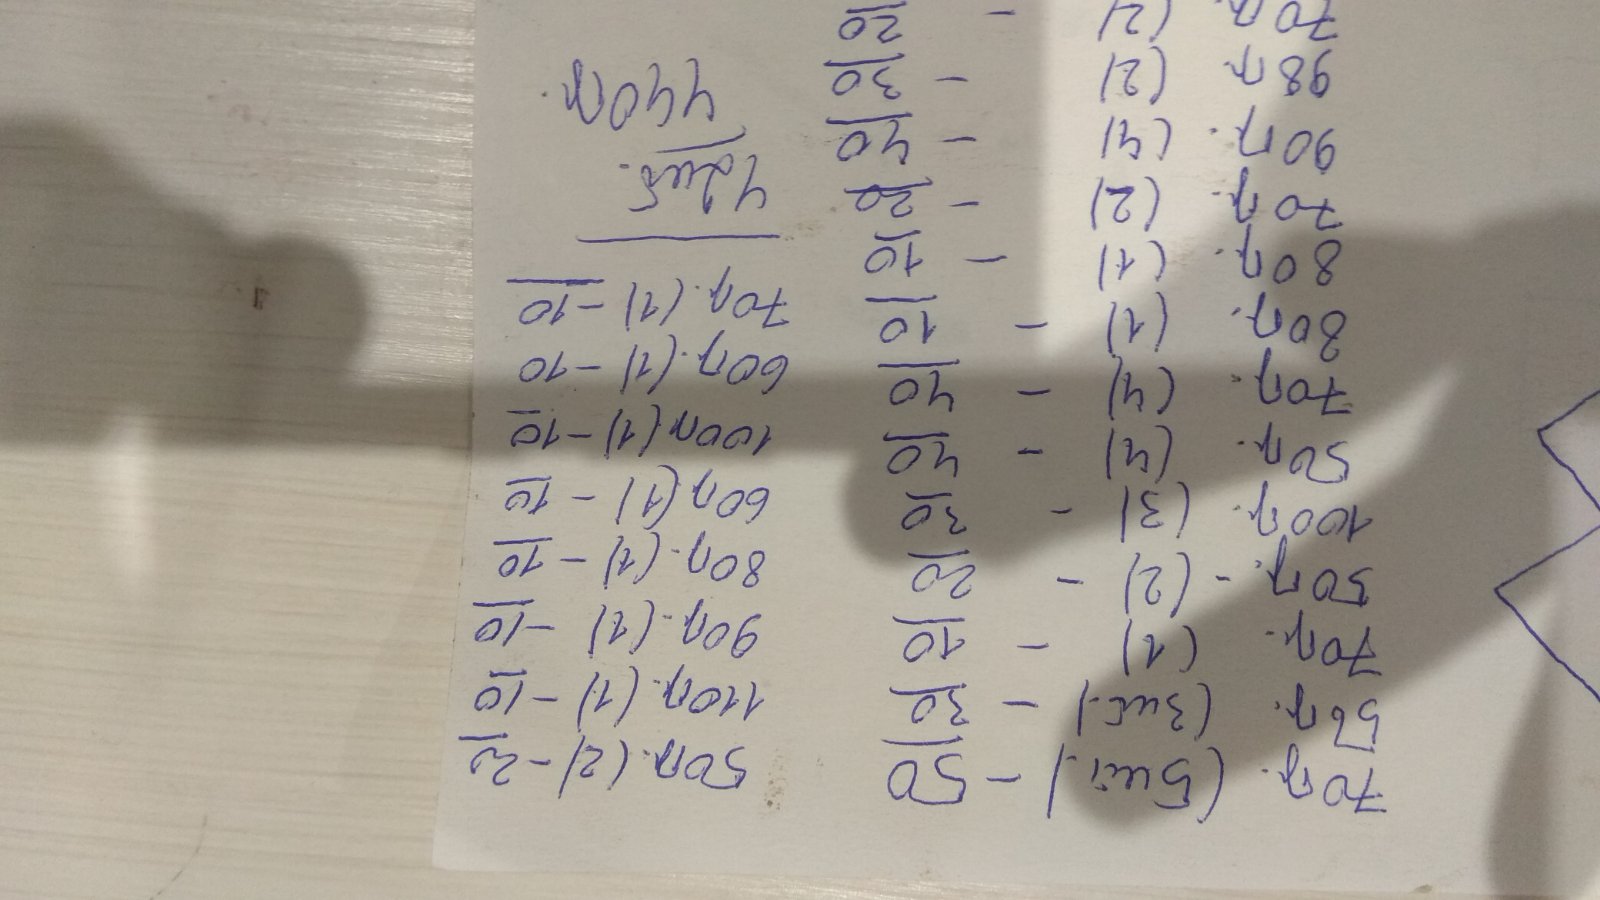 70п. (5шт.) - 50
56п. (3шт.) - 30
70п. (1) - 10
50п. - (2) - 20
100п. (3) - 30
50п. (4) - 40
70п. (4) - 40
80п. (1) - 10
80п. (1) - 10
70п. (2) - 20
90п. (4) - 40
98п. (2) - 30
70п. (2) - 20
50п. (2) - 20
110п. (1) - 10
90п. (1) - 10
80п. (1) - 10
60п (1) - 10
100п (1) - 10
60п. (1) - 10
70п. (1) - 10
42шт.
440п.